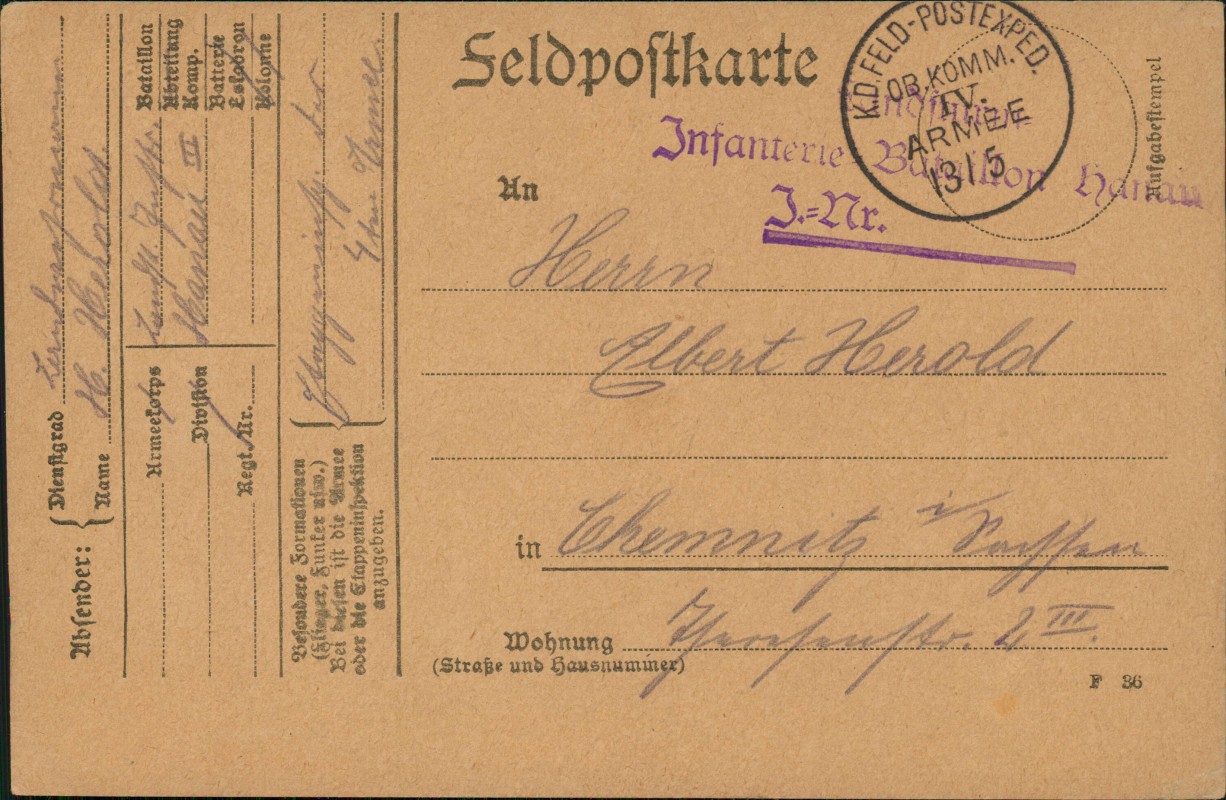 Feldpostkarte
K.D. FELD-POSTEXPED.
OB.KOMM.
IV.
ARMEE
13 1 5
Aufgabestempel
Landsturm-
Infanterie-Bataillon Hanau
J.-Nr.
An
Herrn
Albert Herold
in Chemnitz i/Sachsen
Wohnung Theresenstr. 2 III.
(Straße und Hausnummer)
F 36
Absender:
Dienstgrad Landsturmmann
Name H. Herold.
Bataillon
Abteilung
Komp.
Batterie
Eskadron
Kolonne
Landst. Inftr.
Hanau III
Armeekorps
Division
Regt. Nr.
Etappeninsp. der
4ten Armee
Besondere Formationen
(Flieger, Funker usw.)
Bei diesen ist die Armee
oder die Etappeninspektion
anzugeben.